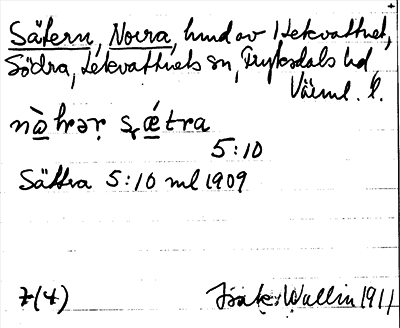 Sätern, Norra, hmd av Lekvattnet,
Södra, Lekvattnets sn, Fryksdals hd,
Värml. l.
nà̱hrəṛ sǽ̱tra
5:10
Sättra 5:10 ml 1909
7(4) Isak Wallin 1911